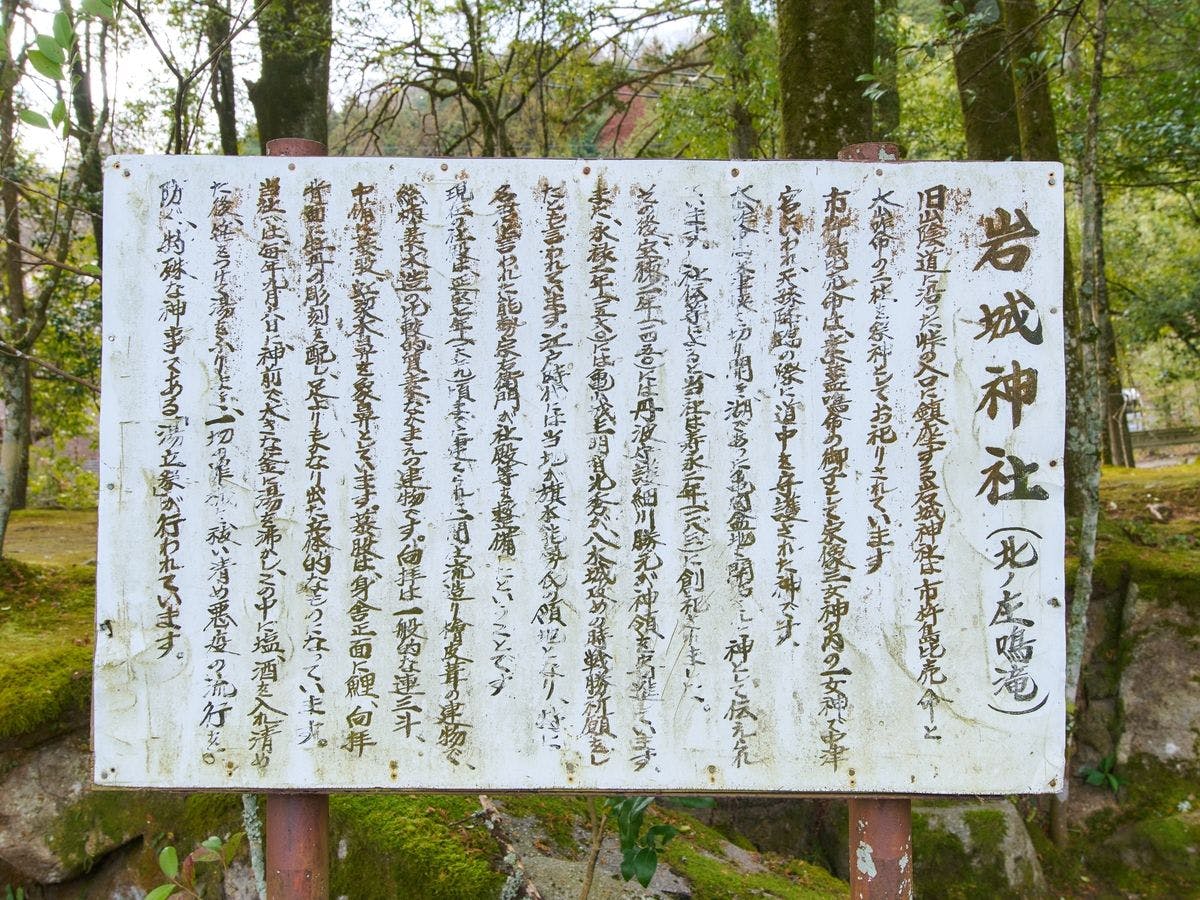 岩城神社(北ノ庄鳴滝)
旧山陰道に沿った峠の入口に鎮座する岩城神社は市杵島毘売命と
大山命の二柱を祭神としてお祀りされています
市杵島毘売命は、素盞嗚命の御子として宗像三女神内の一女神で
宮 われ天孫降臨の際に道中を守護された神です。
切り開き湖であった亀岡盆地を開 した神として伝えられ
ています。社伝等によると当社は寿永二年(一一八三)に創祀されました、
その後、宝徳二年(一四五〇)には丹波守護細川勝元が神領を寄進しています。
また、永禄 年 には亀 明智光秀が八木城攻めの時戦勝祈願をし
たとも言われています。江戸時代には当地が旗本能勢氏の領地となり、特に
名君と言われた能勢 右衛門が社殿等を整備したということです
現在の本 は 七年 頃までに建てられた一間社流造り檜皮葺の建物で、
総 素木造の比較的質素なかまえの建物です。向拝は一般的な連三斗、
中備は蟇股、 木鼻を象鼻としています。蟇股は身舎正面に鯉、向拝
背面に の彫刻を配し、足まりもかなり出た立体的なものになっています。
当社では毎年九月 日に神前で大きな釜に湯を沸かし、この中に塩、酒を入れ清め
た後笹をつけ湯をふりまき、一切の 祓い清め悪疫の流行を
防ぐ、特殊な神事である湯立祭が行われています。